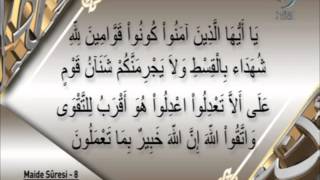 يَا أَيُّهَا الَّذِينَ آمَنُواْ كُونُواْ قَوَّامِينَ لِلّهِ
شُهَدَاء بِالْقِسْطِ وَلاَ يَجْرِمَنَّكُمْ شَنَآنُ قَوْمٍ
عَلَى أَلاَّ تَعْدِلُواْ اعْدِلُواْ هُوَ أَقْرَبُ لِلتَّقْوَى
وَاتَّقُواْ اللّهَ إِنَّ اللّهَ خَبِيرٌ بِمَا تَعْمَلُونَ
Maide Sûresi - 8